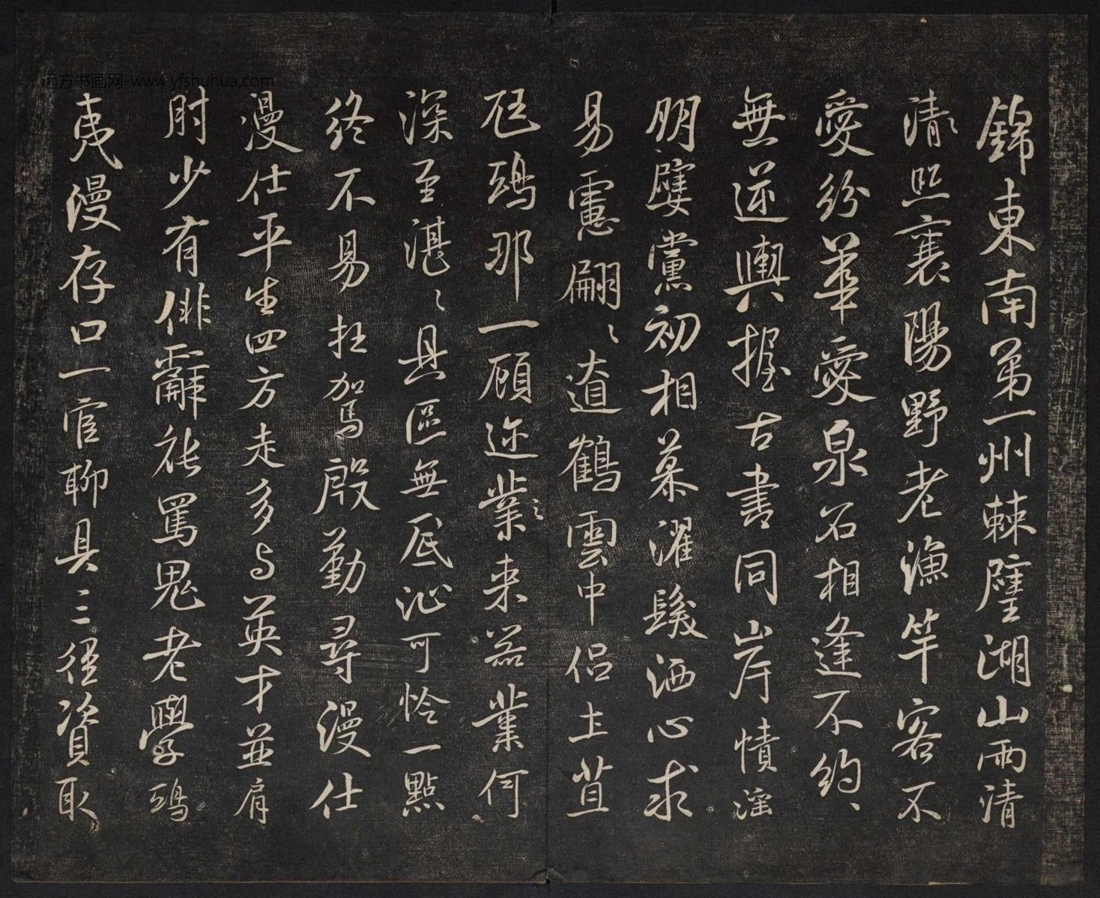 远方书画网-www.yfshuhua.com
錦東南第一州棘璧湖山兩清
清〻照襄陽野老漁竿客不
愛紛華愛泉石相逢不約
無逆輿握古書同岸幘淫
朋嬖黨初相慕濯髮洒心求
易慮翩〻遼鶴雲中侶土苴
尫鴟那一顧迩業〻来器業何
深至湛〻具區無底沚可怜一點
終不易枉駕殷勤尋漫仕
漫仕平生四方走多与英才並肩
肘少有俳辭能罵鬼老學鴟
夷漫存口一官聊具三徑資取